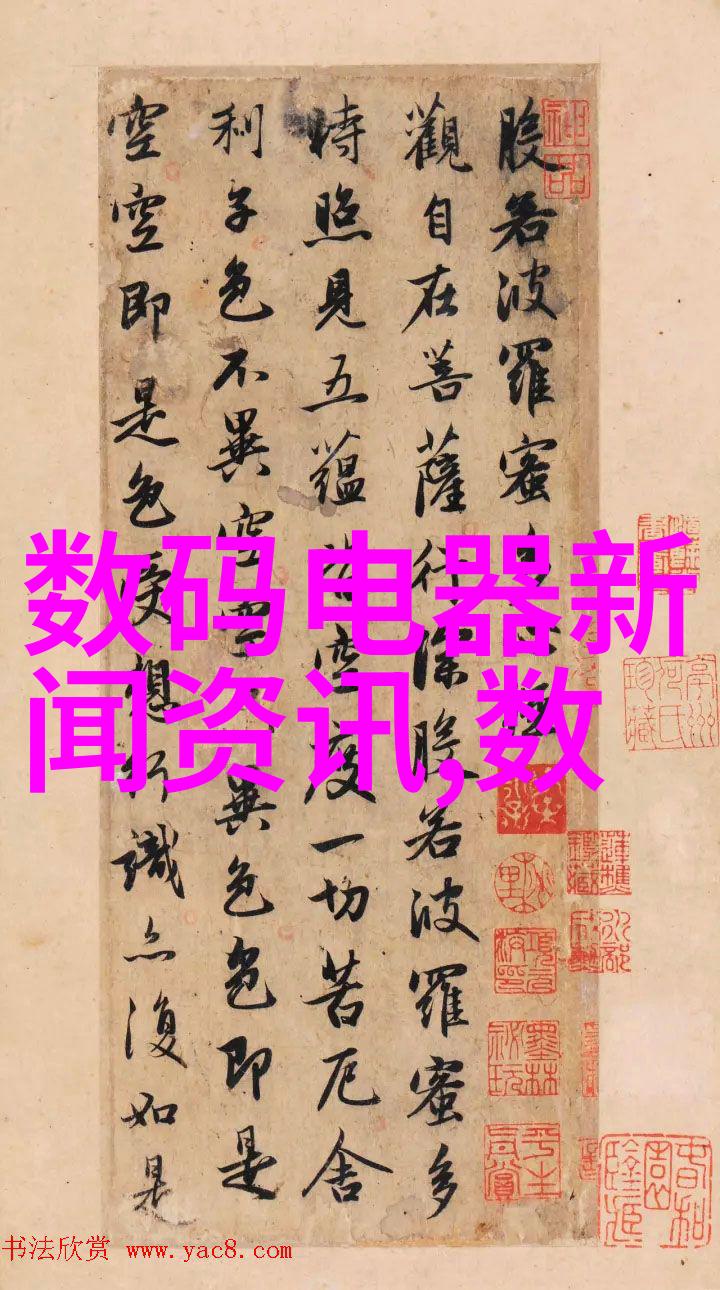 般若波羅蜜多心經
觀自在菩薩行深般若波羅蜜多
時照見五蘊皆空度一切苦厄舍
利子色不異空空不異色色即是
空空即是色受想行識亦復如是
神品
墨林祕玩
数码电器新
闻资讯,数
书法欣赏 www.yac8.com